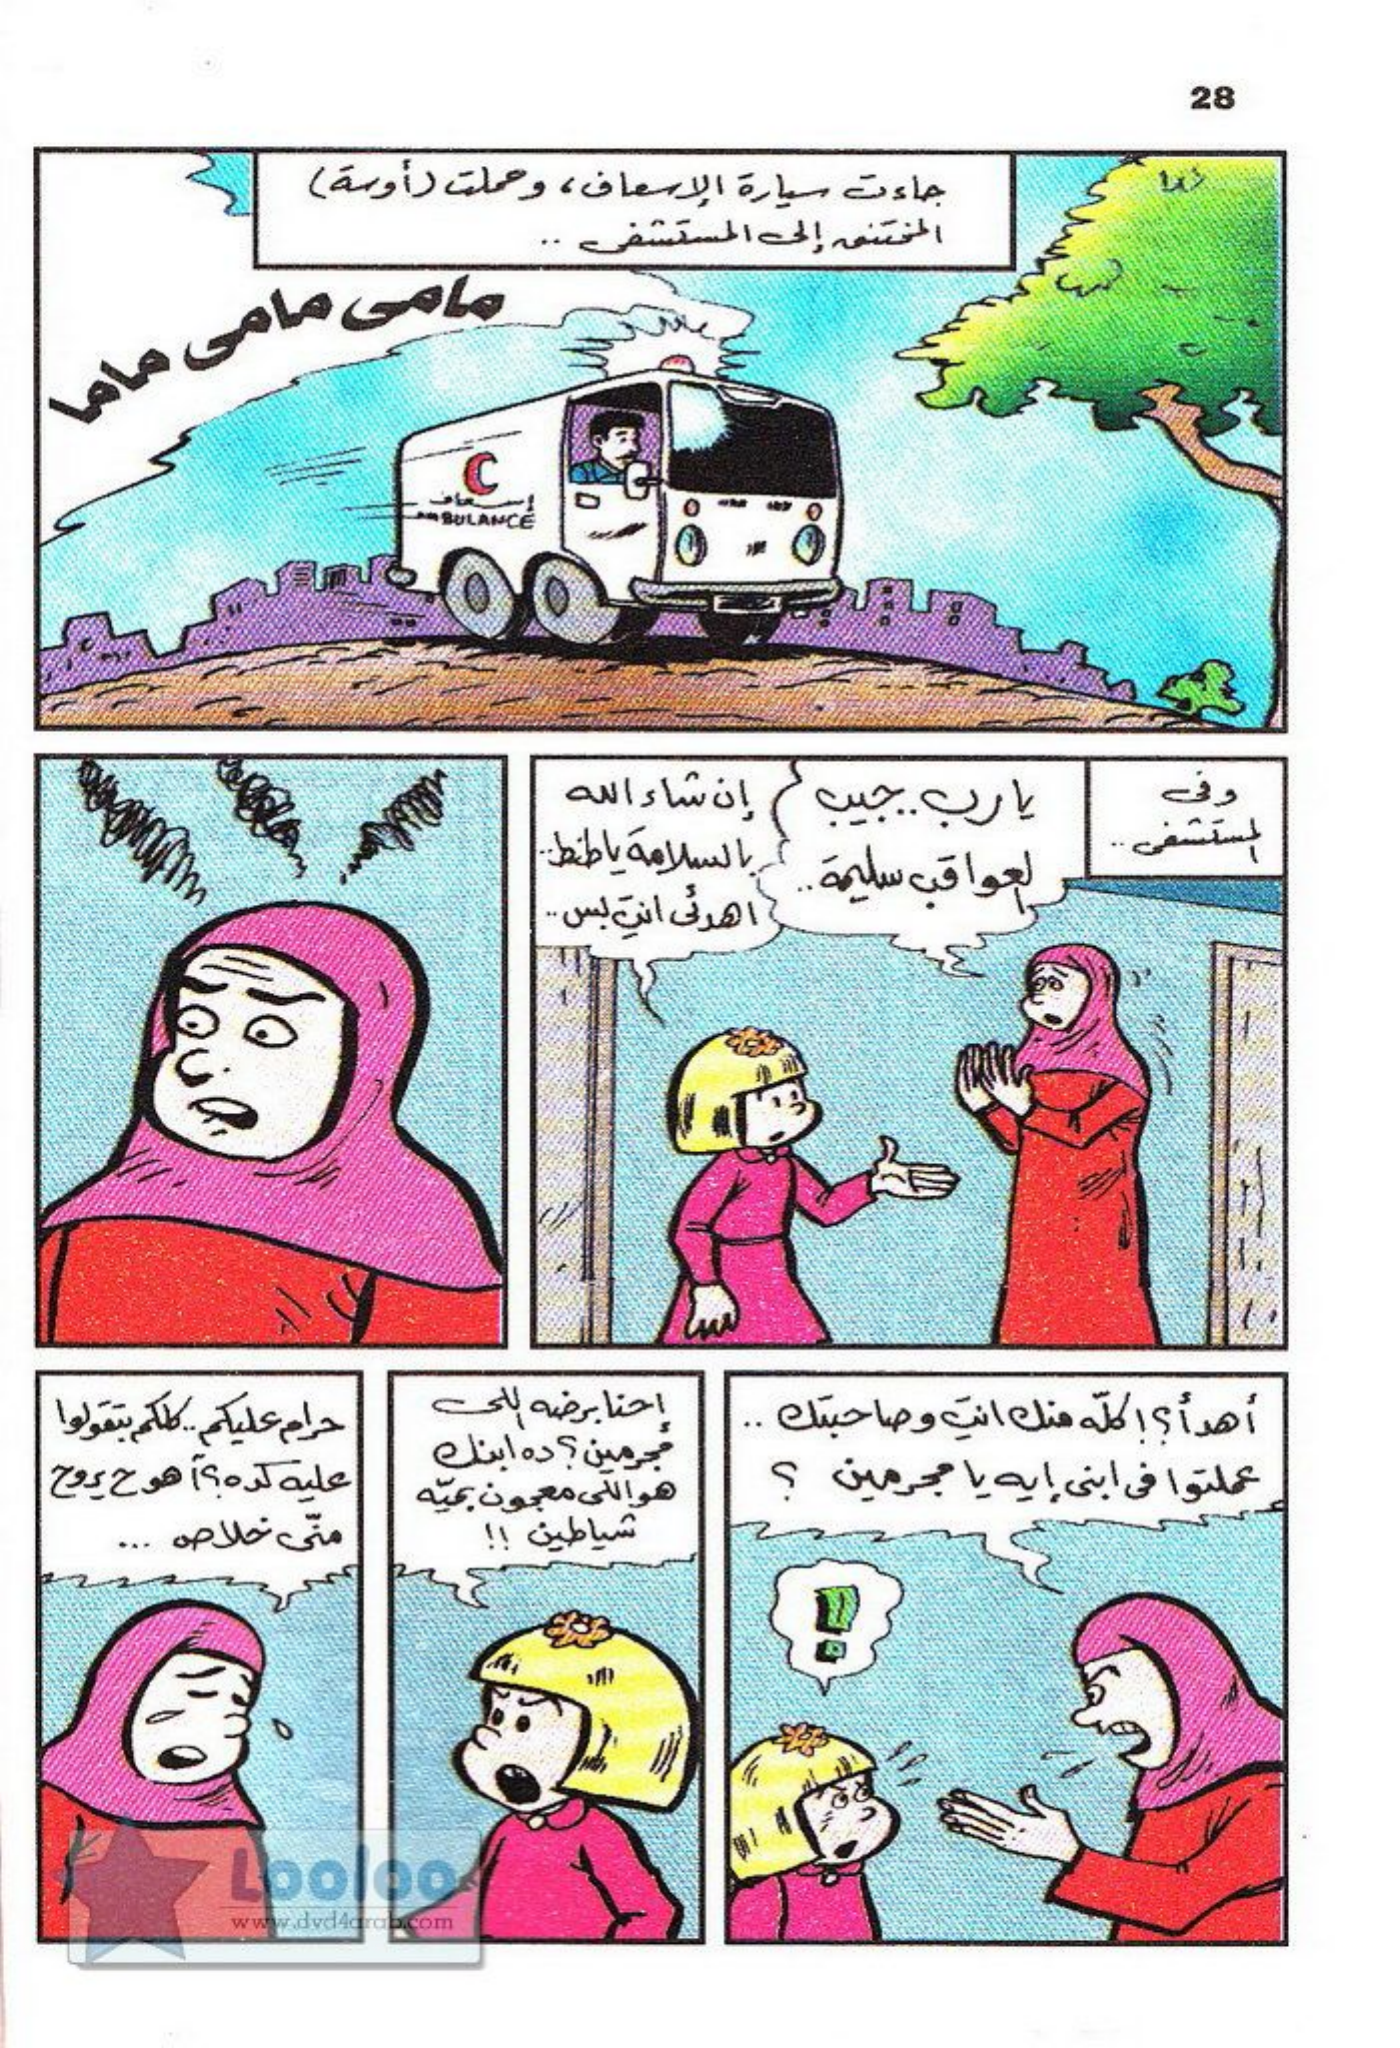 28
جاءت سيارة الإسعاف، وحملت (أوسة)
المختنق إلى المستشفى ..
مامى مامى ماما
إسعاف
AMBULANCE
وفى
المستشفى ..
يارب.. جيب
العواقب سليمة ..
إن شاء الله
بالسلامة يا طنط ..
اهدئى انتِ بس ..
أهدأ؟! كلّه منك انتِ وصاحبتك ..
عملتوا فى ابنى إيه يا مجرمين ؟
!
إحنا برضه اللى
مُجرمين؟ ده ابنك
هو اللى معجون بميّه
شياطين !!
حرام عليكم .. كلكم بتقولوا
عليه كده؟ أهو ح يروح
منّى خلاص ...
Looloo
www.dvd4arab.com